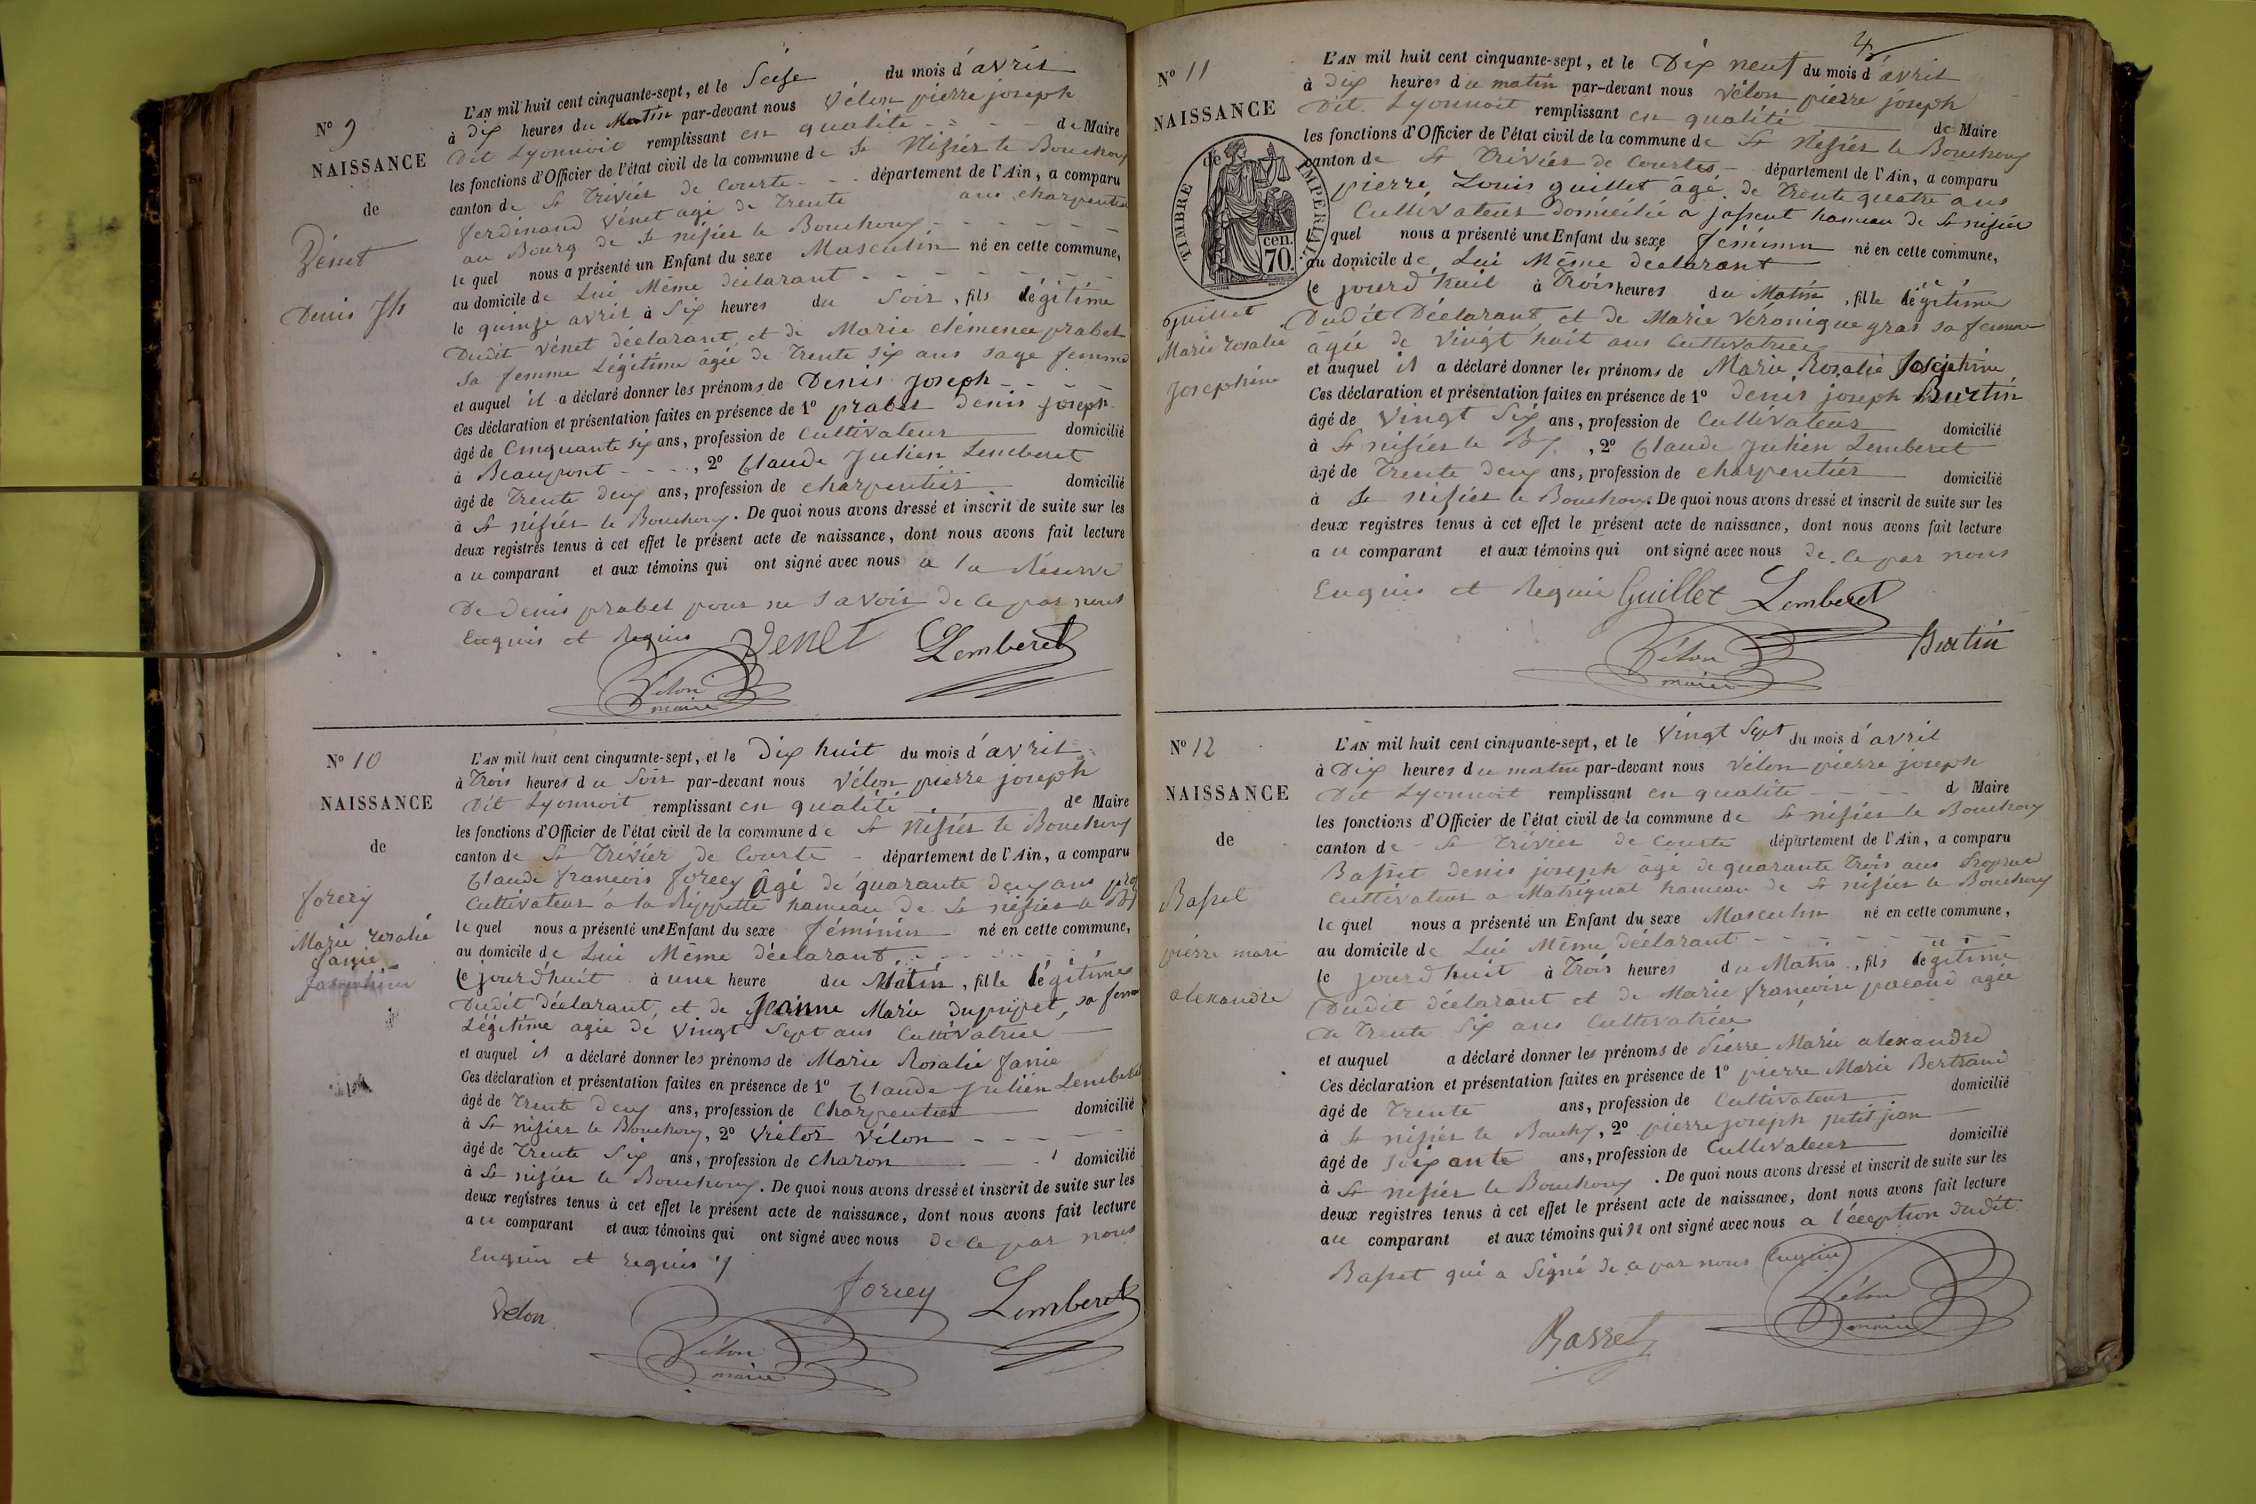 N° 9
NAISSANCE
de
Vénet
Denis Jh
L'AN mil huit cent cinquante-sept, et le Seize du mois d'avril
à dix heures du Matin par-devant nous Vélon pierre joseph
Dit Lyonnoit remplissant en qualité de Maire
les fonctions d'Officier de l'état civil de la commune de St Nisier le Bouchoux
canton de St Trivier de Courte département de l'Ain, a comparu
ferdinand Vénet agé de Trente ans charpentier
au Bourg de St nisier le Bouchoux
le quel nous a présenté un Enfant du sexe Masculin né en cette commune,
au domicile de Lui Même déclarant
le quinze avril à Six heures du Soir, fils légitime
Dudit Vénet déclarant, et de Marie clémence prabel
Sa femme Légitime âgée de Trente Six ans sage femme
et auquel il a déclaré donner les prénoms de Denis Joseph
Ces déclaration et présentation faites en présence de 1° prabel denis joseph
âgé de Cinquante six ans, profession de Cultivateur domicilié
à Beaupont, 2° Claude Julien Lemberet
âgé de Trente deux ans, profession de charpentier domicilié
à St nisier le Bouchoux. De quoi nous avons dressé et inscrit de suite sur les
deux registres tenus à cet effet le présent acte de naissance, dont nous avons fait lecture
au comparant et aux témoins qui ont signé avec nous a la Réserve
De denis prabel pour ne Savoir de ce par nous
Enquis et Requis Venet Lemberet
Vélon
maire
N° 10
NAISSANCE
de
forey
Marie rosalie
fanie
Josephine
L'AN mil huit cent cinquante-sept, et le Dix huit du mois d'avril
à Trois heures du Soir par-devant nous Vélon pierre joseph
Dit Lyonnoit remplissant en qualité de Maire
les fonctions d'Officier de l'état civil de la commune de St Nisier le Bouchoux
canton de St Trivier de Courte département de l'Ain, a comparu
Claude francois forey âgé de quarante deux ans
Cultivateur à la Rippette hameau de St nisier le
le quel nous a présenté une Enfant du sexe féminin né en cette commune,
au domicile de Lui Même déclarant
ce jourd'huit à une heure du Matin, fille légitime
Dudit déclarant, et de Jeanne Marie dupuget, sa femme
Légitime agée de Vingt Sept ans Cultivatrice
et auquel il a déclaré donner les prénoms de Marie Rosalie fanie
Ces déclaration et présentation faites en présence de 1° Claude Julien Lemberet
âgé de Trente deux ans, profession de Charpentier domicilié
à St nisier le Bouchoux, 2° Victor Vélon
âgé de Trente Six ans, profession de charon domicilié
à St nisier le Bouchoux. De quoi nous avons dressé et inscrit de suite sur les
deux registres tenus à cet effet le présent acte de naissance, dont nous avons fait lecture
au comparant et aux témoins qui ont signé avec nous de ce par nous
Enquis et requis
forey Lemberet
Velon
Vélon
maire
N° 11
NAISSANCE
de
TIMBRE IMPERIAL
70 cen.
Guillet
Marie rosalie
Josephine
L'AN mil huit cent cinquante-sept, et le Dix neuf du mois d'avril
à dix heures du matin par-devant nous Vélon pierre joseph
Dit Lyonnoit remplissant en qualité de Maire
les fonctions d'Officier de l'état civil de la commune de St Nisier le Bouchoux
canton de St Trivier de Courtes département de l'Ain, a comparu
pierre Louis guillet âgé de Trente quatre ans
Cultivateur domicilié a hameau de St nisier
quel nous a présenté une Enfant du sexe féminin né en cette commune,
au domicile de Lui Même déclarant
ce jourd'huit à Trois heures du Matin, fille légitime
Dudit Déclarant et de Marie Véronique gras sa femme
âgée de Vingt huit ans Cultivatrice
et auquel il a déclaré donner les prénoms de Marie Rosalie Joséphine
Ces déclaration et présentation faites en présence de 1° denis joseph Burtin
âgé de Vingt Six ans, profession de Cultivateur domicilié
à St nisier le, 2° Claude Julien Lemberet
âgé de Trente deux ans, profession de charpentier domicilié
à St nisier le Bouchoux. De quoi nous avons dressé et inscrit de suite sur les
deux registres tenus à cet effet le présent acte de naissance, dont nous avons fait lecture
au comparant et aux témoins qui ont signé avec nous de ce par nous
Enquis et Requis Guillet Lemberet
Burtin
Vélon
maire
N° 12
NAISSANCE
de
Basset
pierre marie
alexandre
L'AN mil huit cent cinquante-sept, et le Vingt Sept du mois d'avril
à Dix heures du matin par-devant nous Vélon pierre joseph
Dit Lyonnoit remplissant en qualité d Maire
les fonctions d'Officier de l'état civil de la commune de St nisier le Bouchoux
canton de St Trivier de Courte département de l'Ain, a comparu
Basset denis joseph âgé de quarante Trois ans
Cultivateur a Matrignat hameau de St nisier le Bouchoux
le quel nous a présenté un Enfant du sexe Masculin né en cette commune,
au domicile de Lui Même déclarant
ce jourd'huit à Trois heures du Matin, fils légitime
Dudit déclarant et de Marie francoise agée
de Trente Six ans Cultivatrice
et auquel a déclaré donner les prénoms de Pierre Marie alexandre
Ces déclaration et présentation faites en présence de 1° pierre Marie Bertrand
âgé de Trente ans, profession de Cultivateur domicilié
à St nisier le Bouchx, 2° pierre joseph petit jean
âgé de soixante ans, profession de Cultivateur domicilié
à St nisier le Bouchoux. De quoi nous avons dressé et inscrit de suite sur les
deux registres tenus à cet effet le présent acte de naissance, dont nous avons fait lecture
au comparant et aux témoins qui n ont signé avec nous a l'éception dudit
Basset qui a Signé de ce par nous Enquis
Vélon
maire
Basset